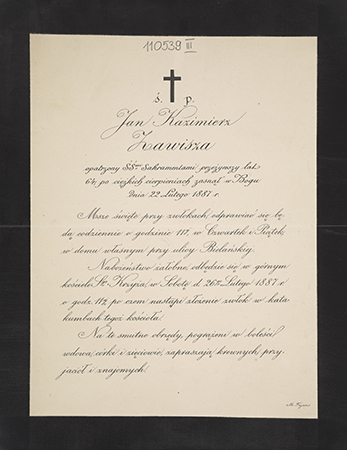 110539 III
ś. p.
Jan Kazimierz
Zawisza
opatrzony SŚmi Sakramentami przeżywszy lat
64, po ciężkich cierpieniach zasnął w Bogu
dnia 22 Lutego 1887 r.
Msze święte przy zwłokach, odprawiać się bę-
dą codziennie o godzinie 11½, w Czwartek i Piątek,
w domu własnym przy ulicy Bielańskiej.
Nabożeństwo żałobne, odbędzie się w górnym
kościele Sgo Krzyża, w Sobotę d. 26go Lutego 1887 r.
o godz. 11½, po czem nastąpi złożenie zwłok w kata-
kumbach tegoż kościoła.
Na te smutne obrzędy, pogrążeni w boleści
wdowa, córki i zięciowie, zapraszają krewnych, przy-
jaciół i znajomych.